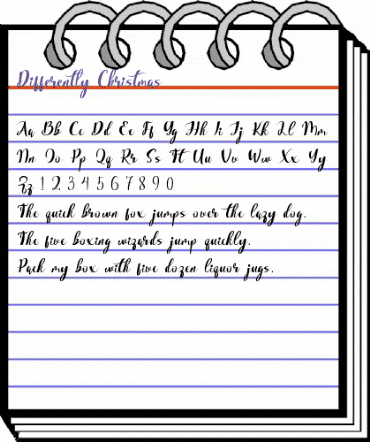 Differently Christmas
Aa Bb Cc Dd Ee Ff Gg Hh Ii Jj Kk Ll Mm
Nn Oo Pp Qq Rr Ss Tt Uu Vv Ww Xx Yy
Zz 1 2 3 4 5 6 7 8 9 0
The quick brown fox jumps over the lazy dog.
The five boxing wizards jump quickly.
Pack my box with five dozen liquor jugs.